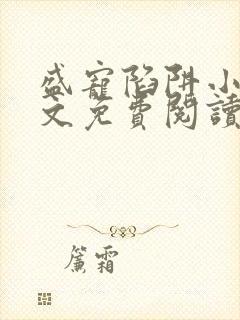 盛寵陷阱小
文免費閱讀
簾霜